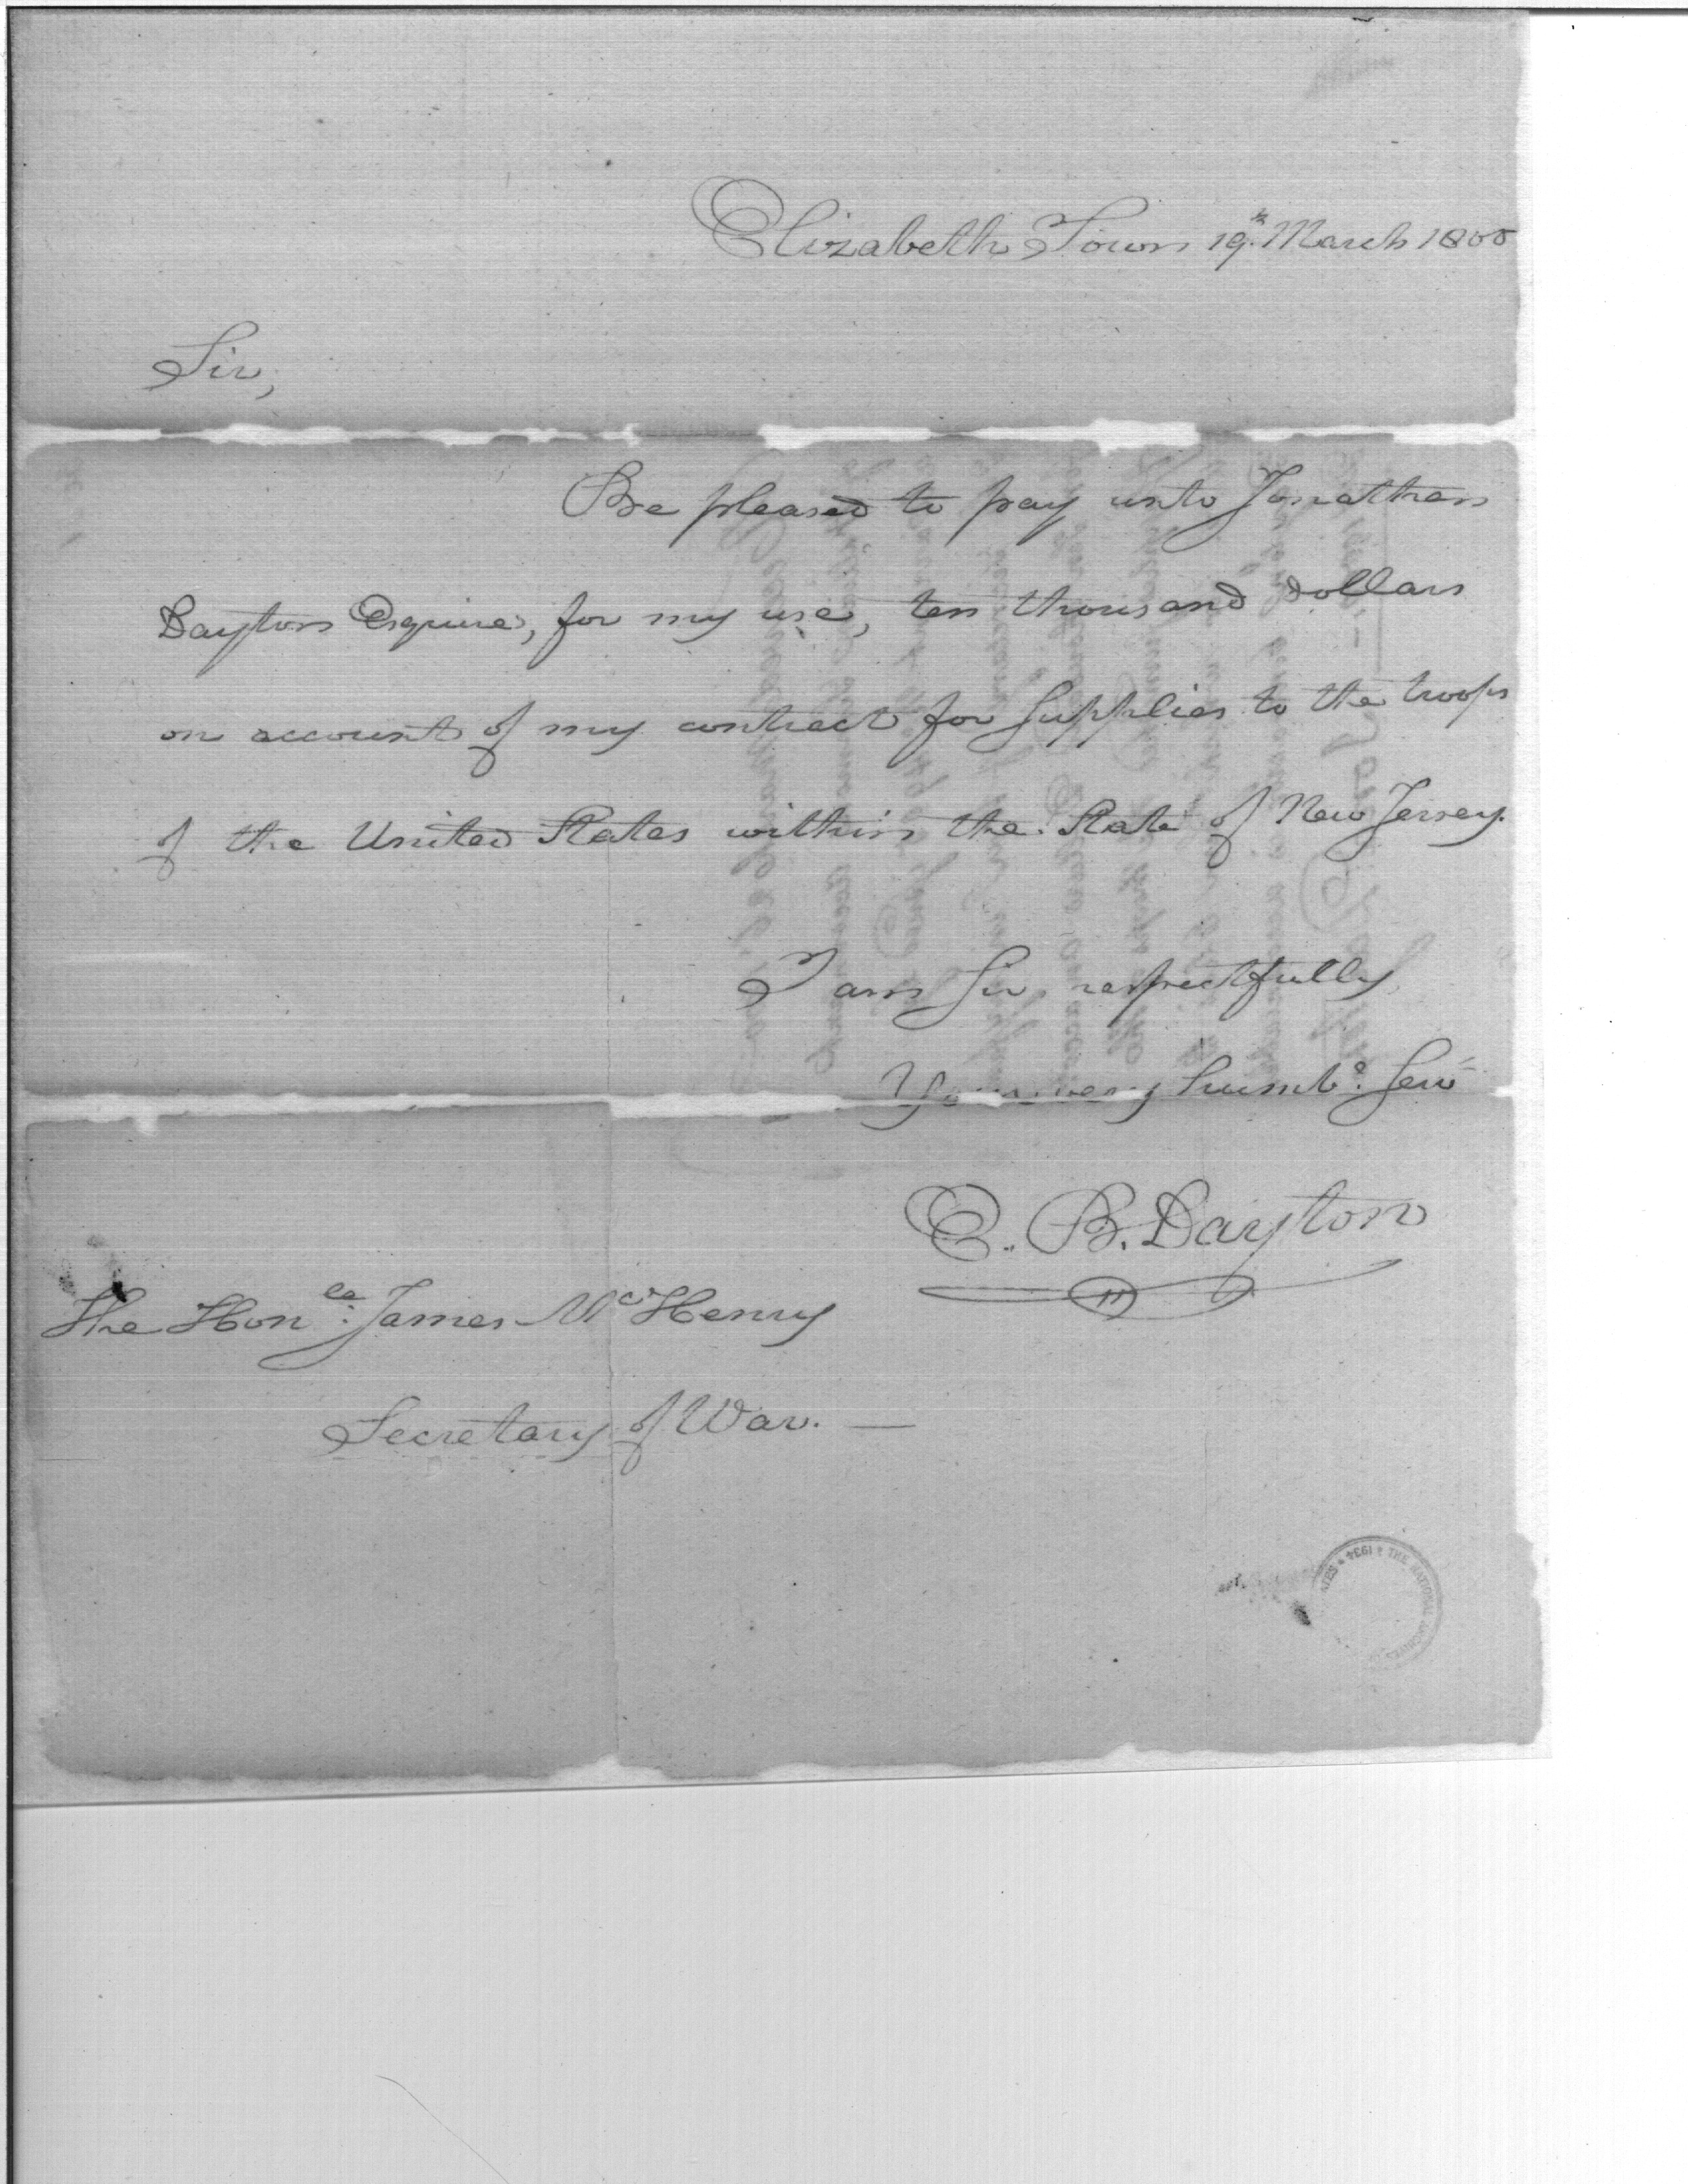 Elizabeth Town 19th March 1800
Sir,
Be pleased to pay unto Jonathan
Dayton Esquire, for my use, ten thousand dollars
on account of my contract for Supplies to the troops
of the United States within the State of New Jersey.
I am Sir respectfully
Your very humbe. Servt
E. B. Dayton
The Honle. James McHenry
Secretary of War. —
THE NATIONAL ARCHIVES 1934